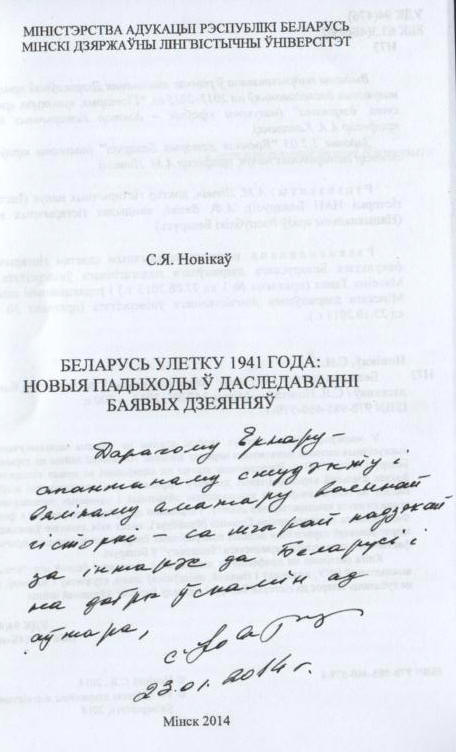 МІНІСТЭРСТВА АДУКАЦЫІ РЭСПУБЛІКІ БЕЛАРУСЬ
МІНСКІ ДЗЯРЖАЎНЫ ЛІНГВІСТЫЧНЫ ЎНІВЕРСІТЭТ
С.Я. Новікаў
БЕЛАРУСЬ УЛЕТКУ 1941 ГОДА:
НОВЫЯ ПАДЫХОДЫ Ў ДАСЛЕДАВАННІ
БАЯВЫХ ДЗЕЯННЯЎ
Дарагому Ернару –
апантанаму студэнту і
вялікаму аматару ваеннай
гісторыі – са шчырай падзякай
за інтарэс да Беларусі і
на добры ўспамін ад
аўтара,
23.01.2014 г.
Мінск 2014